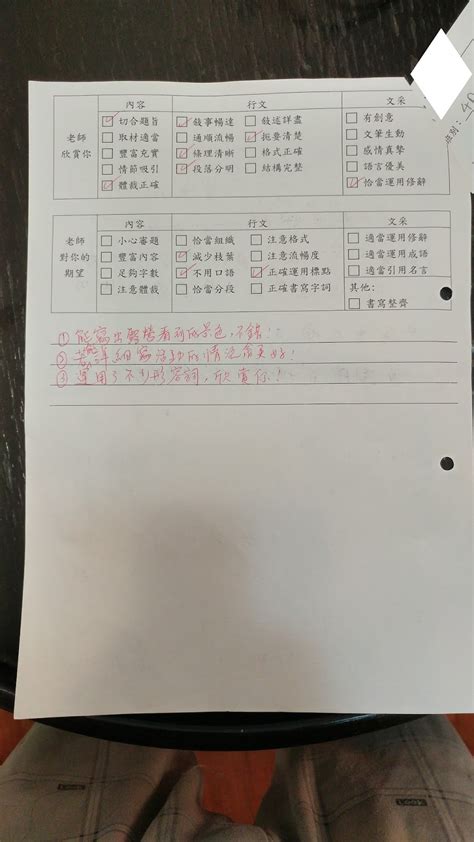 班別：4
內容 行文 文采
老師欣賞你
☑切合題旨 ☑敘事暢達 ☐敘述詳盡 ☐有創意
☐取材適當 ☐通順流暢 ☑扼要清楚 ☐文筆生動
☐豐富充實 ☑條理清晰 ☐格式正確 ☐感情真摯
☐情節吸引 ☑段落分明 ☐結構完整 ☐語言優美
☑體裁正確 ☑恰當運用修辭
內容 行文 文采
老師對你的期望
☐小心審題 ☐恰當組織 ☐注意格式 ☐適當運用修辭
☐豐富內容 ☑減少枝葉 ☐注意流暢度 ☐適當運用成語
☐足夠字數 ☑不用口語 ☑正確運用標點 ☐適當引用名言
☐注意體裁 ☐恰當分段 ☐正確書寫字詞 其他:
☐書寫整齊
①能寫出露營看到的景色，不錯！
②若能詳細寫活動的情況會更好！
③運用了不少形容詞，欣賞你！